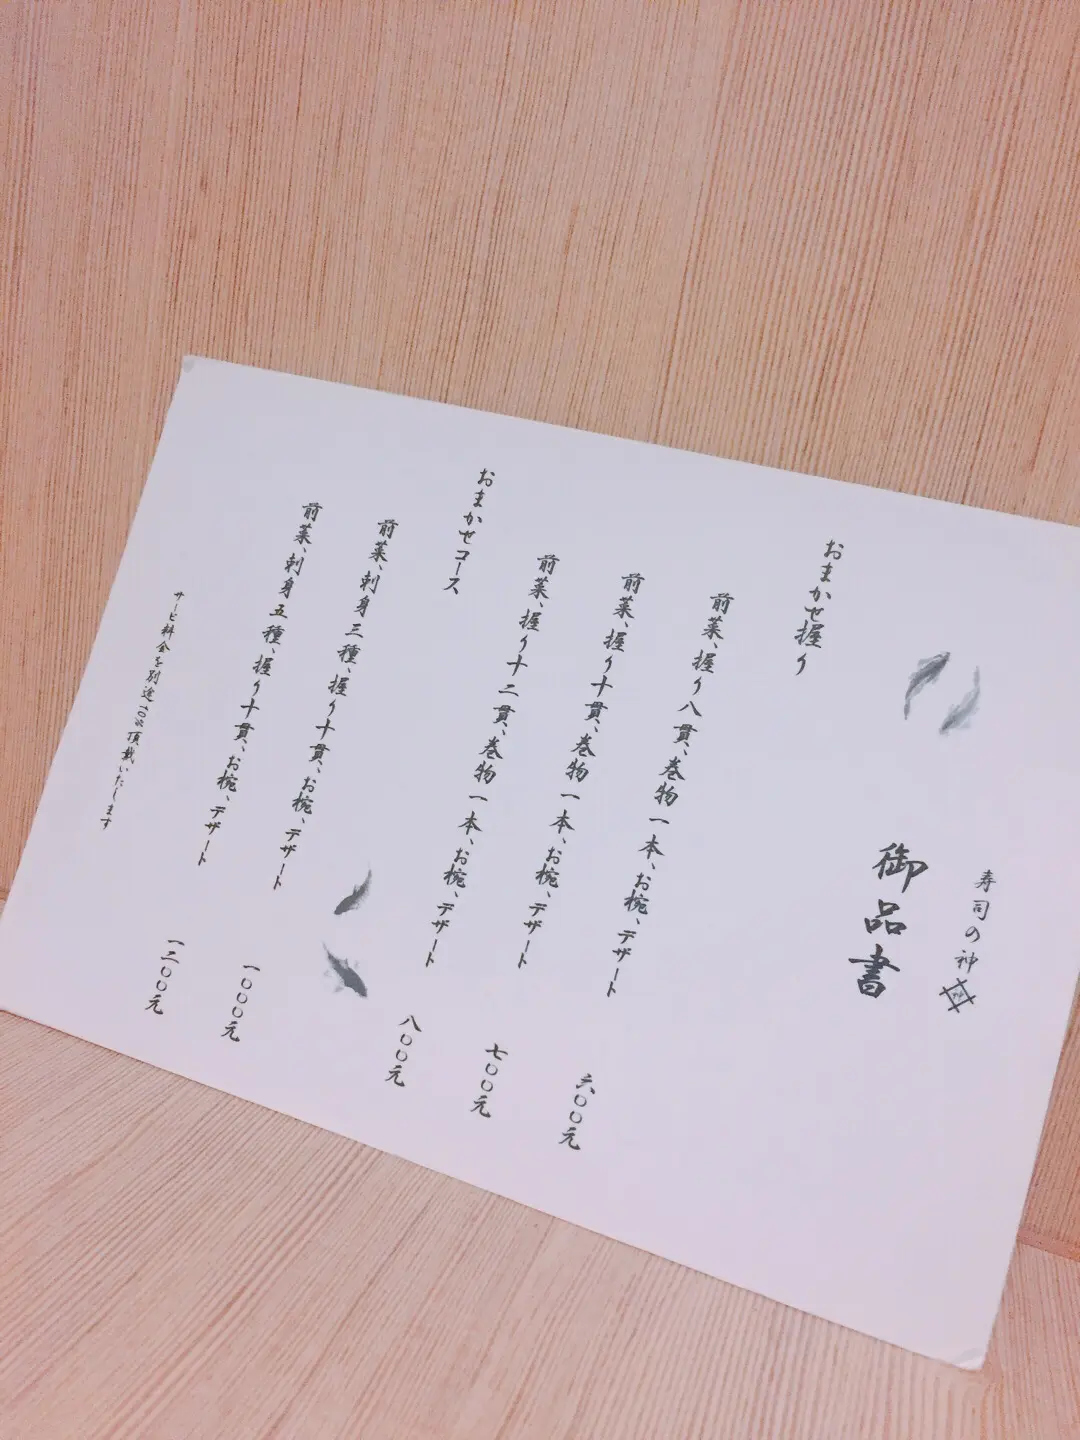 寿司の神
御品書
おまかせ握り
前菜、握り八貫、巻物一本、お椀、デザート
六〇〇元
前菜、握り十貫、巻物一本、お椀、デザート
七〇〇元
前菜、握り十二貫、巻物一本、お椀、デザート
八〇〇元
おまかせコース
前菜、刺身三種、握り十貫、お椀、デザート
一〇〇〇元
前菜、刺身五種、握り十貫、お椀、デザート
一二〇〇元
サービ料金を別途10%頂栽いたします